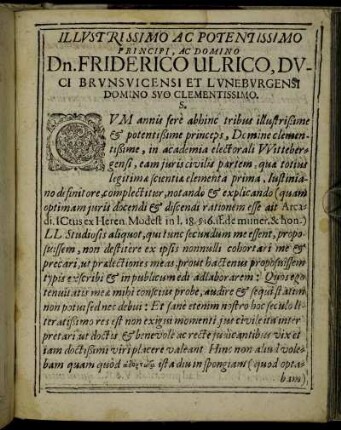 ILLVSTRISSIMO AC POTENTISSIMO
PRINCIPI, AC DOMINO
Dn. FRIDERICO ULRICO, DV-
CI BRVNSVICENSI ET LVNEBVRGENSI
DOMINO SVO CLEMENTISSIMO.
S.
CVM annis ferè abhinc tribus illustrißime
& potentißime princeps, Domine clemen-
tißime, in academia electorali VVitteber-
gensi, eam juris civilis partem, quæ totius
legitimæ scientiæ elementa prima, Iustinia-
no definitore, complectitur, notando & explicando (quam
optimam juris docendi & discendi rationem esse ait Arca-
di. ICtus ex Heren. Modest in l. 18. §16. ff. de muner. & hon.)
LL. Studiosis aliquot, qui tunc secundum me essent, propo-
suissem, non destitere ex ipsis nonnulli cohortari me &
precari, ut prælectiones meas, prout hactenus proposuissem
typis exscribi & in publicum edi adlaborarem: Quos ego
tenuitatis meæ mihi conscius probe, audire & sequi statim
non potui sed nec debui: Et sanè etenim nostro hoc seculo li-
teratissimo res est non exigui momenti jus civile ita inter-
pretari ut doctis & benevolè ac rectè judicantibus vix et-
iam doctissimi viri placere valeant Hinc non aliud vole-
bam quam quòd ista diu in spongiam (quod opta-
bam)